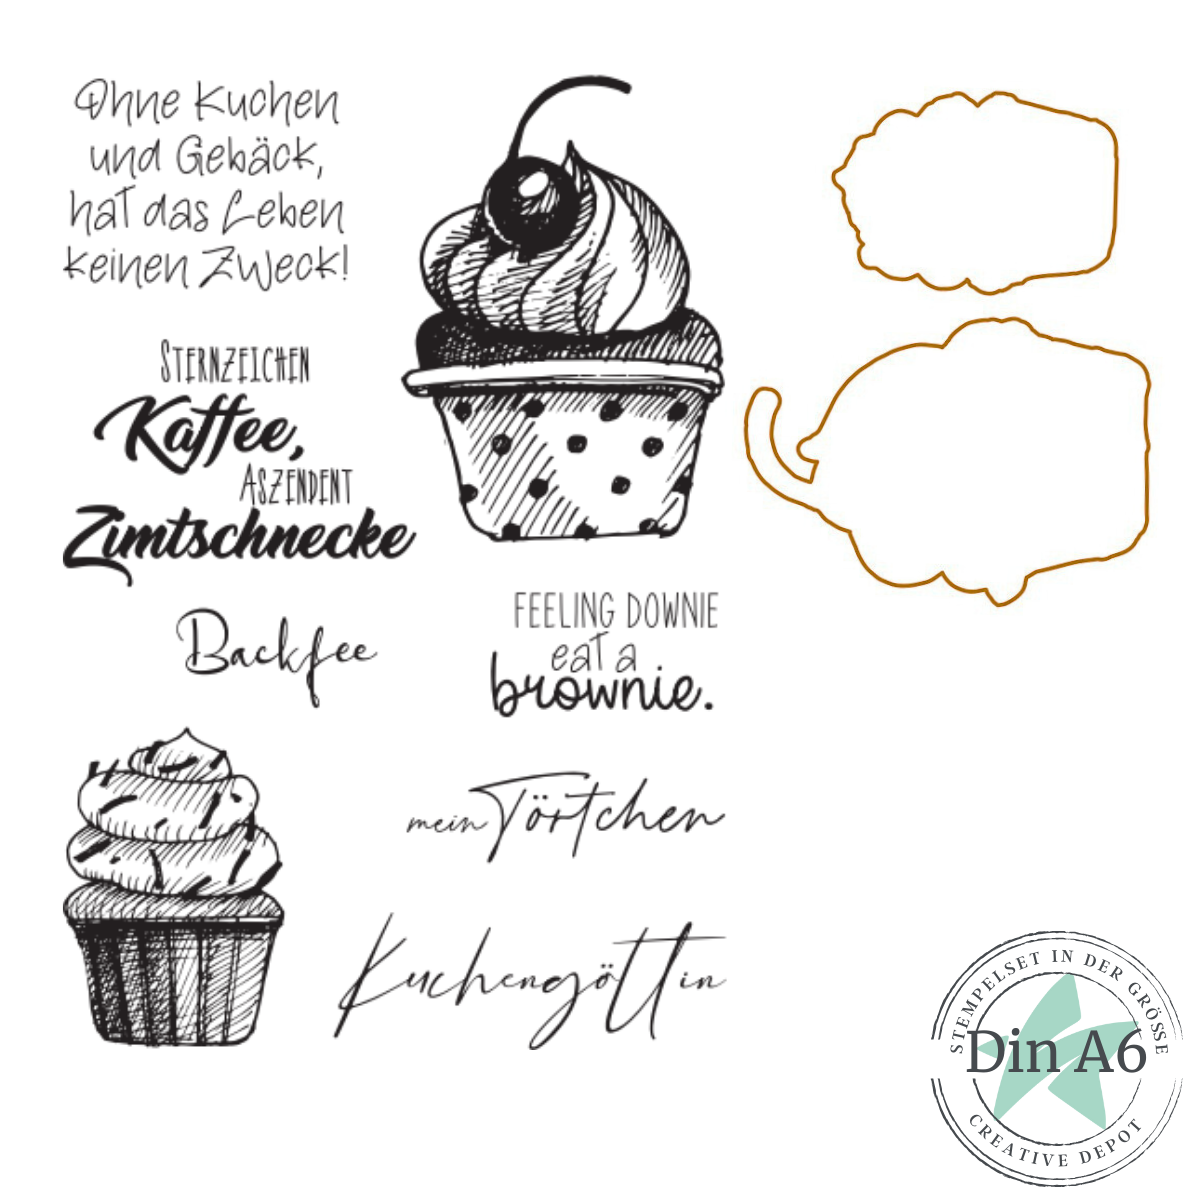 Ohne Kuchen
und Gebäck,
hat das Leben
keinen Zweck!
STERNZEICHEN
Kaffee,
ASZENDENT
Zimtschnecke
Backfee
FEELING DOWNIE
eat a
brownie.
mein Törtchen
Kuchengöttin
STEMPELSET IN DER GRÖSSE
Din A6
CREATIVE DEPOT